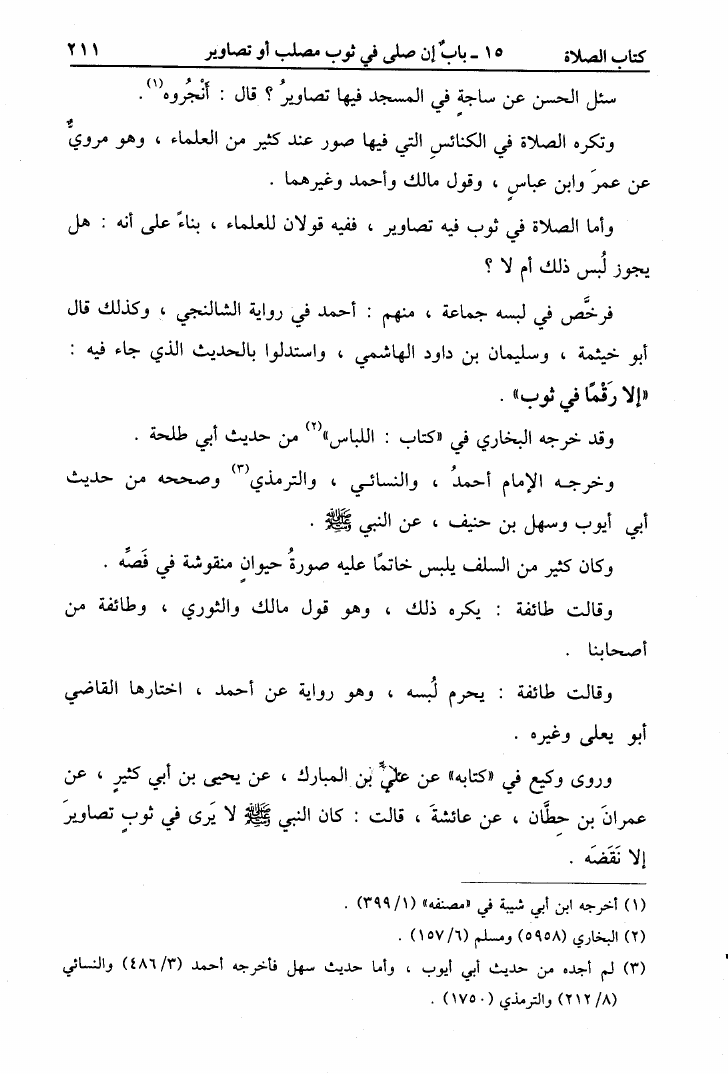 كتاب الصلاة ١٥ - بابٌ إن صلى في ثوب مصلب أو تصاوير ٢١١
سئل الحسن عن ساجةٍ في المسجد فيها تصاويرُ ؟ قال : أَنْجُروه(١).
وتكره الصلاة في الكنائسِ التي فيها صور عند كثير من العلماء ، وهو مرويٌّ
عن عمرَ وابن عباسٍ ، وقول مالك وأحمد وغيرهما .
وأما الصلاة في ثوب فيه تصاوير ، ففيه قولان للعلماء ، بناءً على أنه : هل
يجوز لُبس ذلك أم لا ؟
فرخَّص في لبسه جماعة ، منهم : أحمد في رواية الشالنجي ، وكذلك قال
أبو خيثمة ، وسليمان بن داود الهاشمي ، واستدلوا بالحديث الذي جاء فيه :
«إلا رَقْمًا في ثوب» .
وقد خرجه البخاري في «كتاب : اللباس»(٢) من حديث أبي طلحة .
وخرجه الإمام أحمدُ ، والنسائي ، والترمذي(٣) وصححه من حديث
أبي أيوب وسهل بن حنيف ، عن النبي ﷺ .
وكان كثير من السلف يلبس خاتمًا عليه صورةُ حيوانٍ منقوشة في فَصِّه .
وقالت طائفة : يكره ذلك ، وهو قول مالك والثوري ، وطائفة من
أصحابنا .
وقالت طائفة : يحرم لُبسه ، وهو رواية عن أحمد ، اختارها القاضي
أبو يعلى وغيره .
وروى وكيع في «كتابه» عن عليِّ بن المبارك ، عن يحيى بن أبي كثيرٍ ، عن
عمرانَ بن حِطَّان ، عن عائشةَ ، قالت : كان النبي ﷺ لا يَرى في ثوبٍ تصاويرَ
إلا نَقَضَه .
(١) أخرجه ابن أبي شيبة في «مصنفه» (٣٩٩/١) .
(٢) البخاري (٥٩٥٨) ومسلم (١٥٧/٦) .
(٣) لم أجده من حديث أبي أيوب ، وأما حديث سهل فأخرجه أحمد (٤٨٦/٣) والنسائي
(٢١٢/٨) والترمذي (١٧٥٠) .